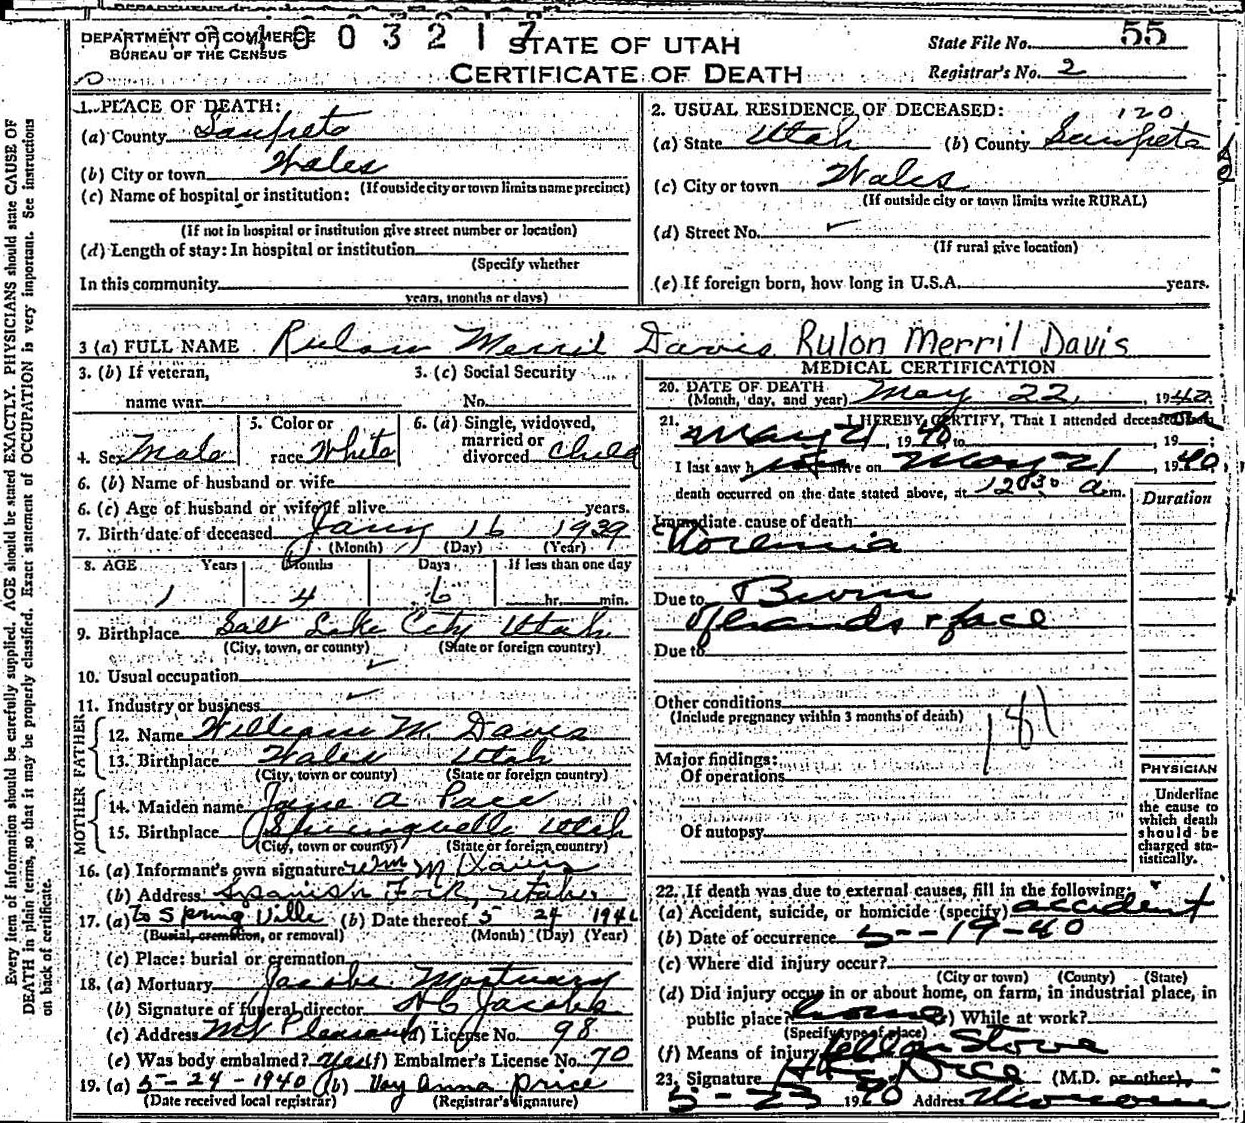 DEPARTMENT OF COMMERCE
BUREAU OF THE CENSUS
0 0 3 2 1 7
STATE OF UTAH
CERTIFICATE OF DEATH
State File No. 55
Registrar's No. 2
Every item of information should be carefully supplied. AGE should be stated EXACTLY. PHYSICIANS should state CAUSE OF
DEATH in plain terms, so that it may be properly classified. Exact statement of OCCUPATION is very important. See instructions
on back of certificate.
1. PLACE OF DEATH:
(a) County Sanpete
(b) City or town Wales
(If outside city or town limits name precinct)
(c) Name of hospital or institution:
(If not in hospital or institution give street number or location)
(d) Length of stay: In hospital or institution
(Specify whether
In this community
years, months or days)
2. USUAL RESIDENCE OF DECEASED:
120
(a) State Utah (b) County Sanpete
(c) City or town Wales
(If outside city or town limits write RURAL)
(d) Street No.
(If rural give location)
(e) If foreign born, how long in U.S.A. years.
3 (a) FULL NAME Rulon Merril Davis Rulon Merril Davis
3. (b) If veteran,
name war
3. (c) Social Security
No.
4. Sex Male
5. Color or
race White
6. (a) Single, widowed,
married or
divorced Child
6. (b) Name of husband or wife
6. (c) Age of husband or wife if alive years.
7. Birth date of deceased Jany 16 1939
(Month) (Day) (Year)
8. AGE Years Months Days If less than one day
1 4 6 hr. min.
9. Birthplace Salt Lake City Utah
(City, town, or county) (State or foreign country)
10. Usual occupation
11. Industry or business
FATHER
12. Name William M. Davis
13. Birthplace Wales Utah
(City, town or county) (State or foreign country)
MOTHER
14. Maiden name Jane A Pace
15. Birthplace Springville Utah
(City, town or county) (State or foreign country)
16. (a) Informant's own signature Wm M Davis
(b) Address Spanish Fork, Utah
17. (a) to Springville (b) Date thereof 5 24 1940
(Burial, cremation, or removal) (Month) (Day) (Year)
(c) Place: burial or cremation
18. (a) Mortuary Jacobs Mortuary
(b) Signature of funeral director H C Jacobs
(c) Address Mt Pleasant (d) License No. 98
(e) Was body embalmed? Yes (f) Embalmer's License No. 70
19. (a) 5-24-1940 (b) May Anna Price
(Date received local registrar) (Registrar's signature)
MEDICAL CERTIFICATION
20. DATE OF DEATH
(Month, day, and year) May 22, 1940
21. I HEREBY CERTIFY, That I attended deceased
May 21, 1940 to , 19 ;
I last saw h alive on May 21, 1940,
death occurred on the date stated above, at 12:30 a.m.
Duration
Immediate cause of death
Due to Burn
of hands & face
Due to
Other conditions
(Include pregnancy within 3 months of death)
181
Major findings:
Of operations
Of autopsy
PHYSICIAN
Underline
the cause to
which death
should be
charged sta-
tistically.
22. If death was due to external causes, fill in the following:
(a) Accident, suicide, or homicide (specify) accident
(b) Date of occurrence 5--19-40
(c) Where did injury occur?
(City or town) (County) (State)
(d) Did injury occur in or about home, on farm, in industrial place, in
public place? home (e) While at work?
(Specify type of place)
(f) Means of injury Stove
23. Signature (M.D. or other)
5-23 1940 Address Moroni